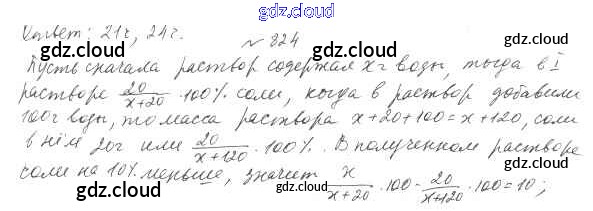 gdz.cloud
Ответ: 21г, 24г.
gdz.cloud № 824 gdz.cloud
Пусть сначала раствор содержал x г воды, тогда в I
растворе 20/(x+20) · 100% соли, когда в раствор добавили
gdz.cloud gdz.cloud
100г воды, то масса раствора x+20+100=x+120, соли
в нём 20г или 20/(x+120) · 100%. В полученном растворе
gdz.cloud gdz.cloud
соли на 10% меньше, значит x/(x+20) · 100 - 20/(x+120) · 100 = 10;
gdz.cloud gdz.cloud